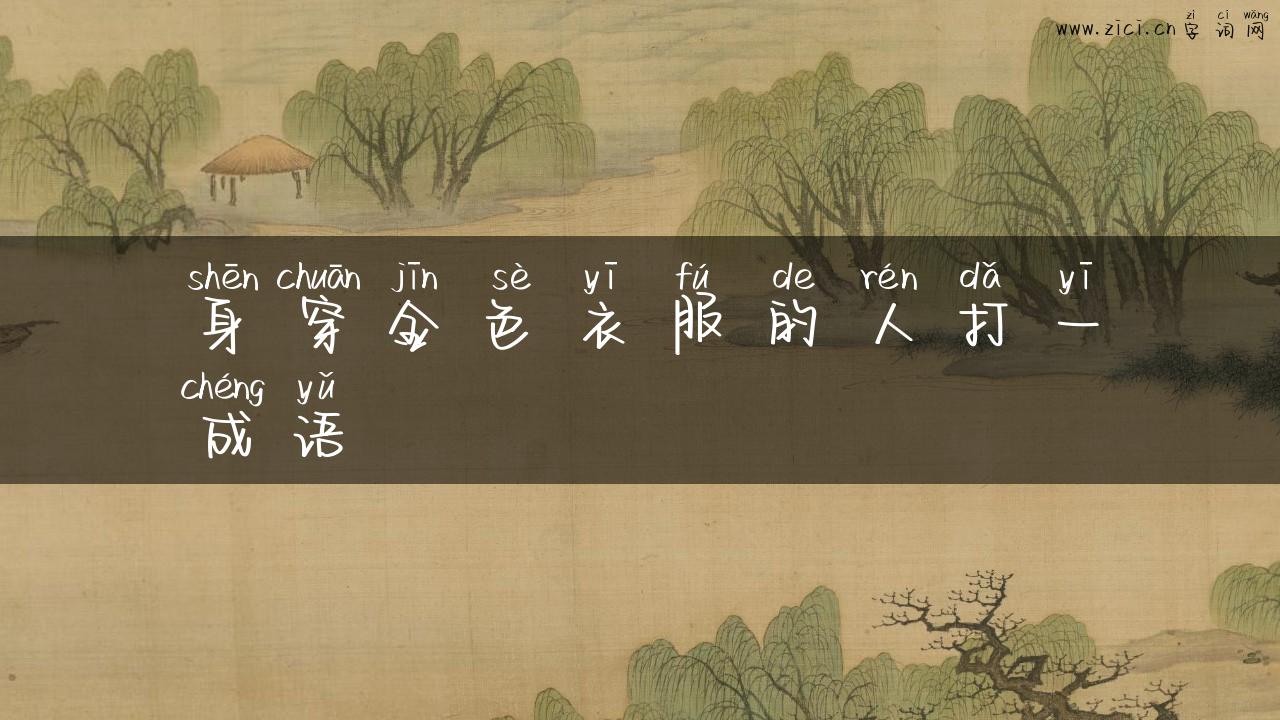 zì cí wǎng
www.zici.cn 字词网
shēn chuān jīn sè yī fú de rén dǎ yī
身穿金色衣服的人打一
chéng yǔ
成语